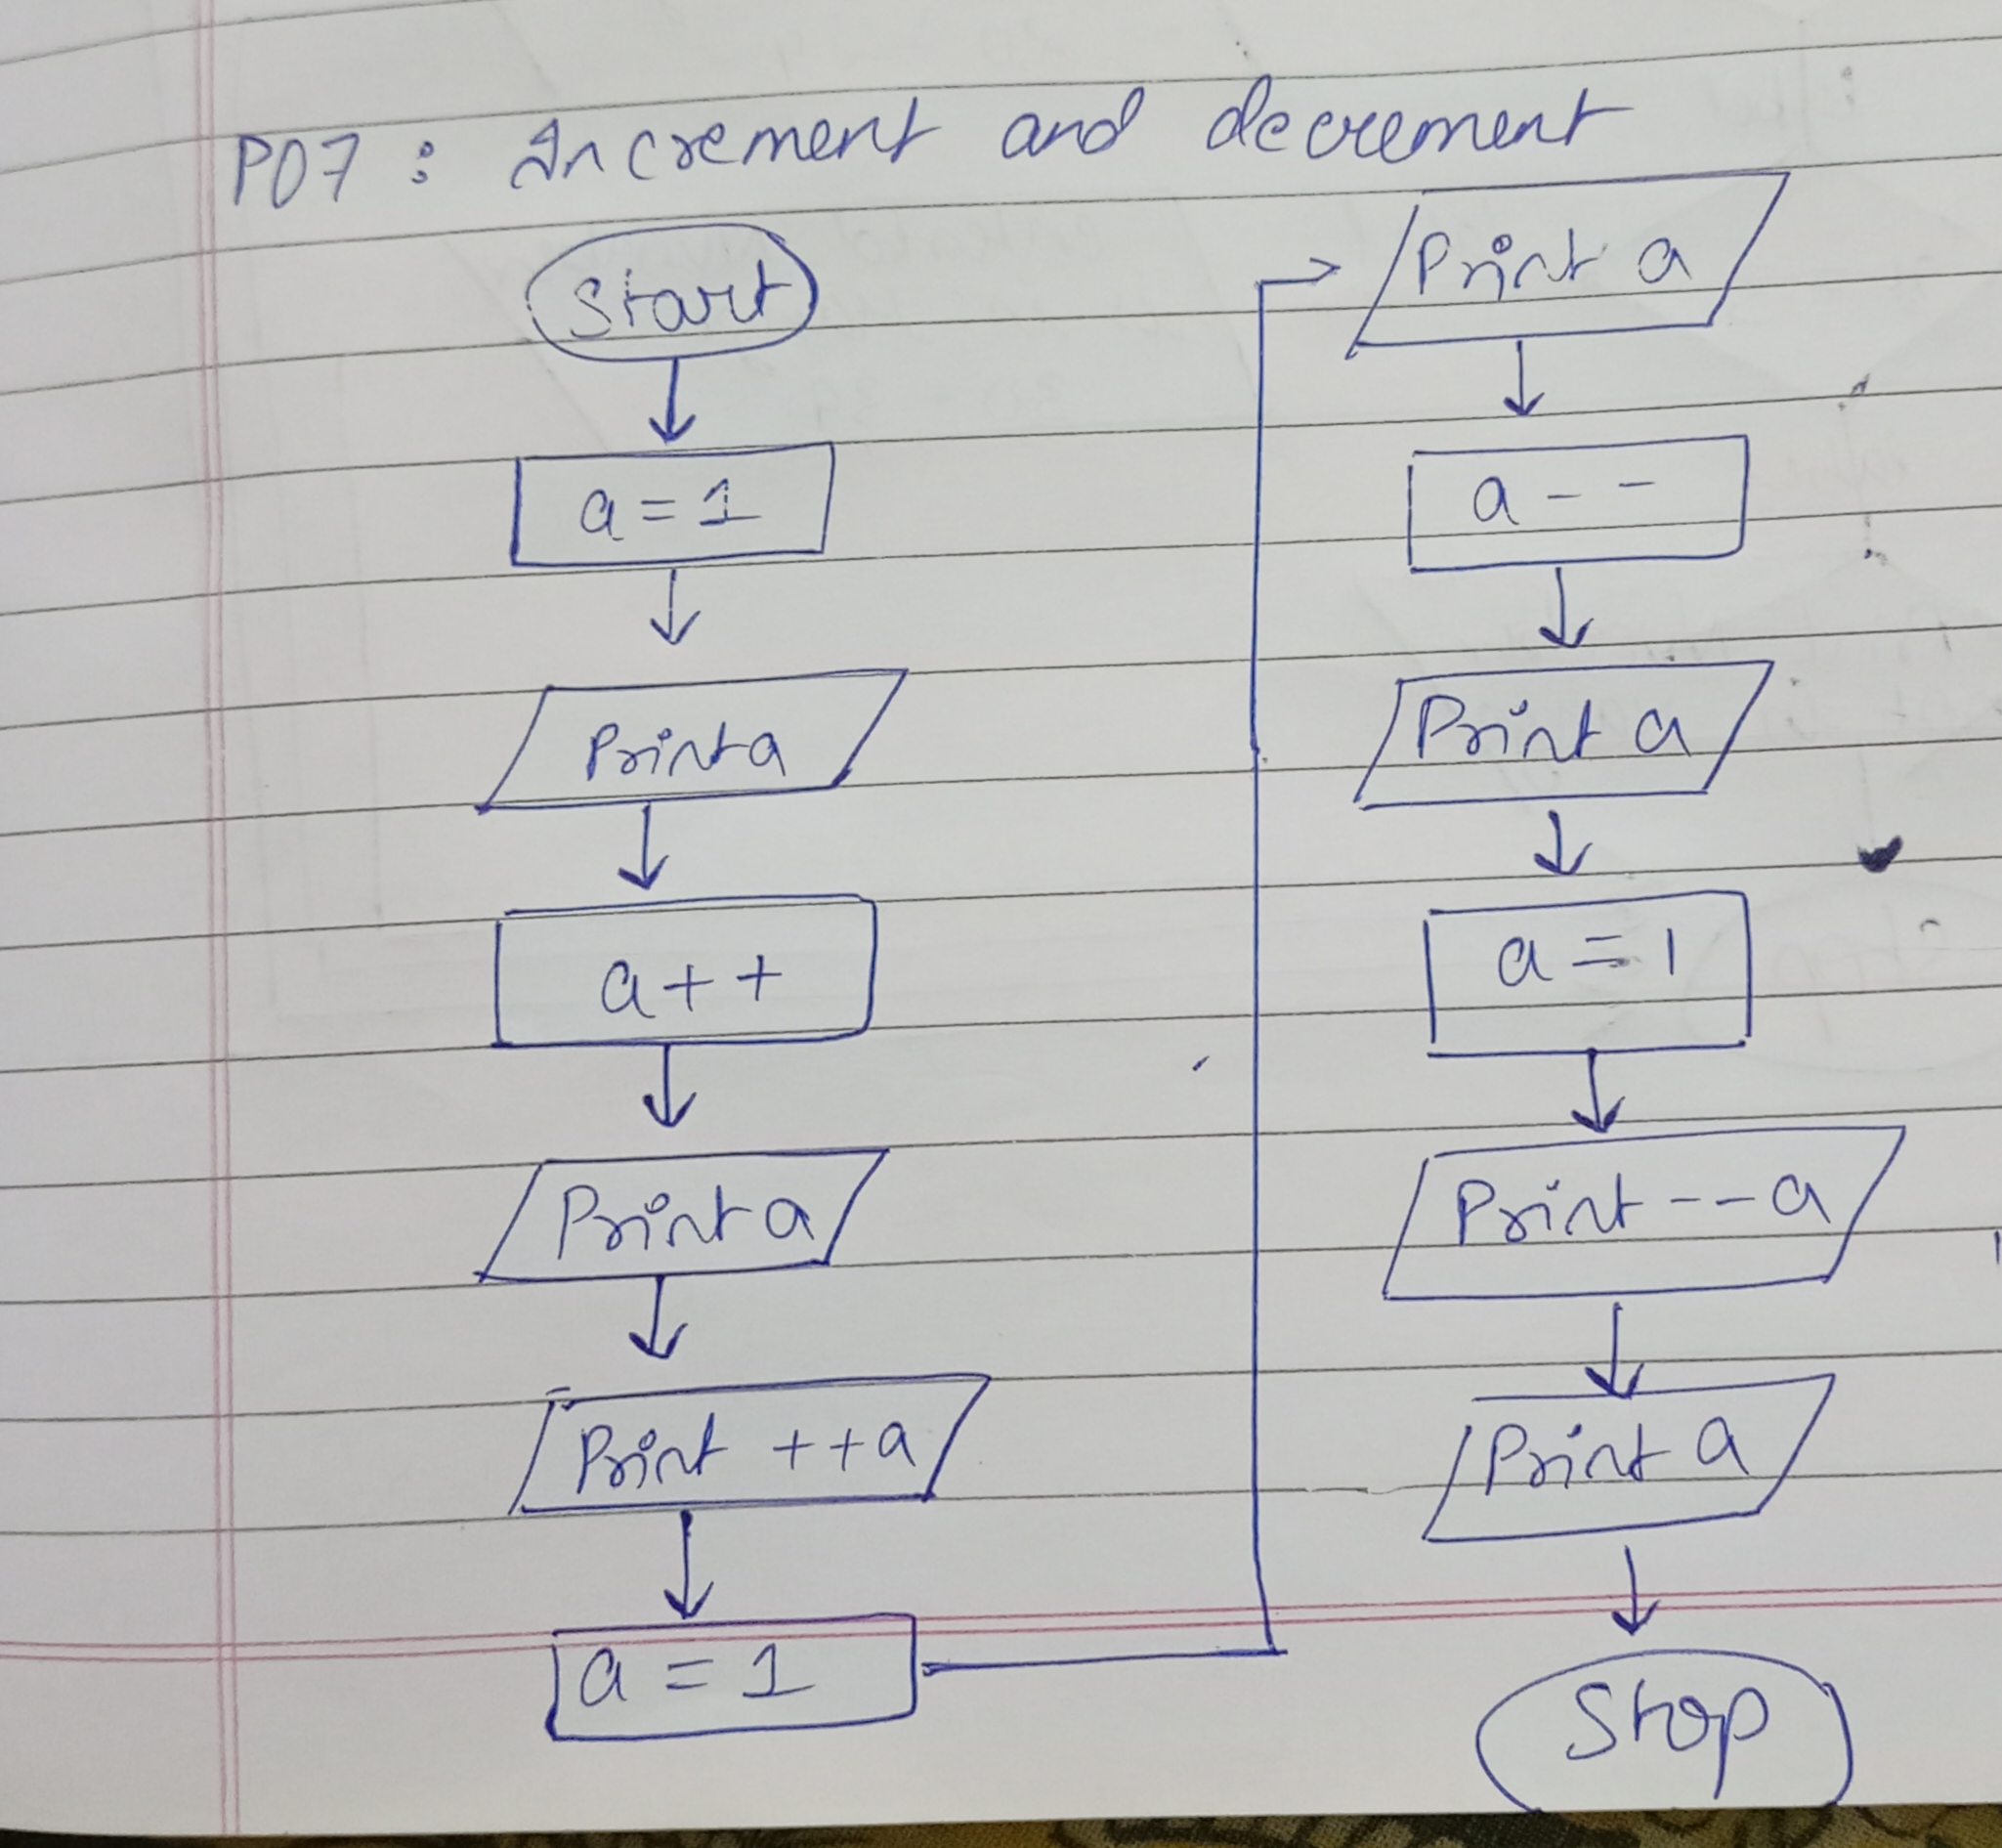 P07 : Increment and decrement
Start
a = 1
Print a
a + +
Print a
Print ++a
a = 1
Print a
a - -
Print a
a = 1
Print --a
Print a
Stop